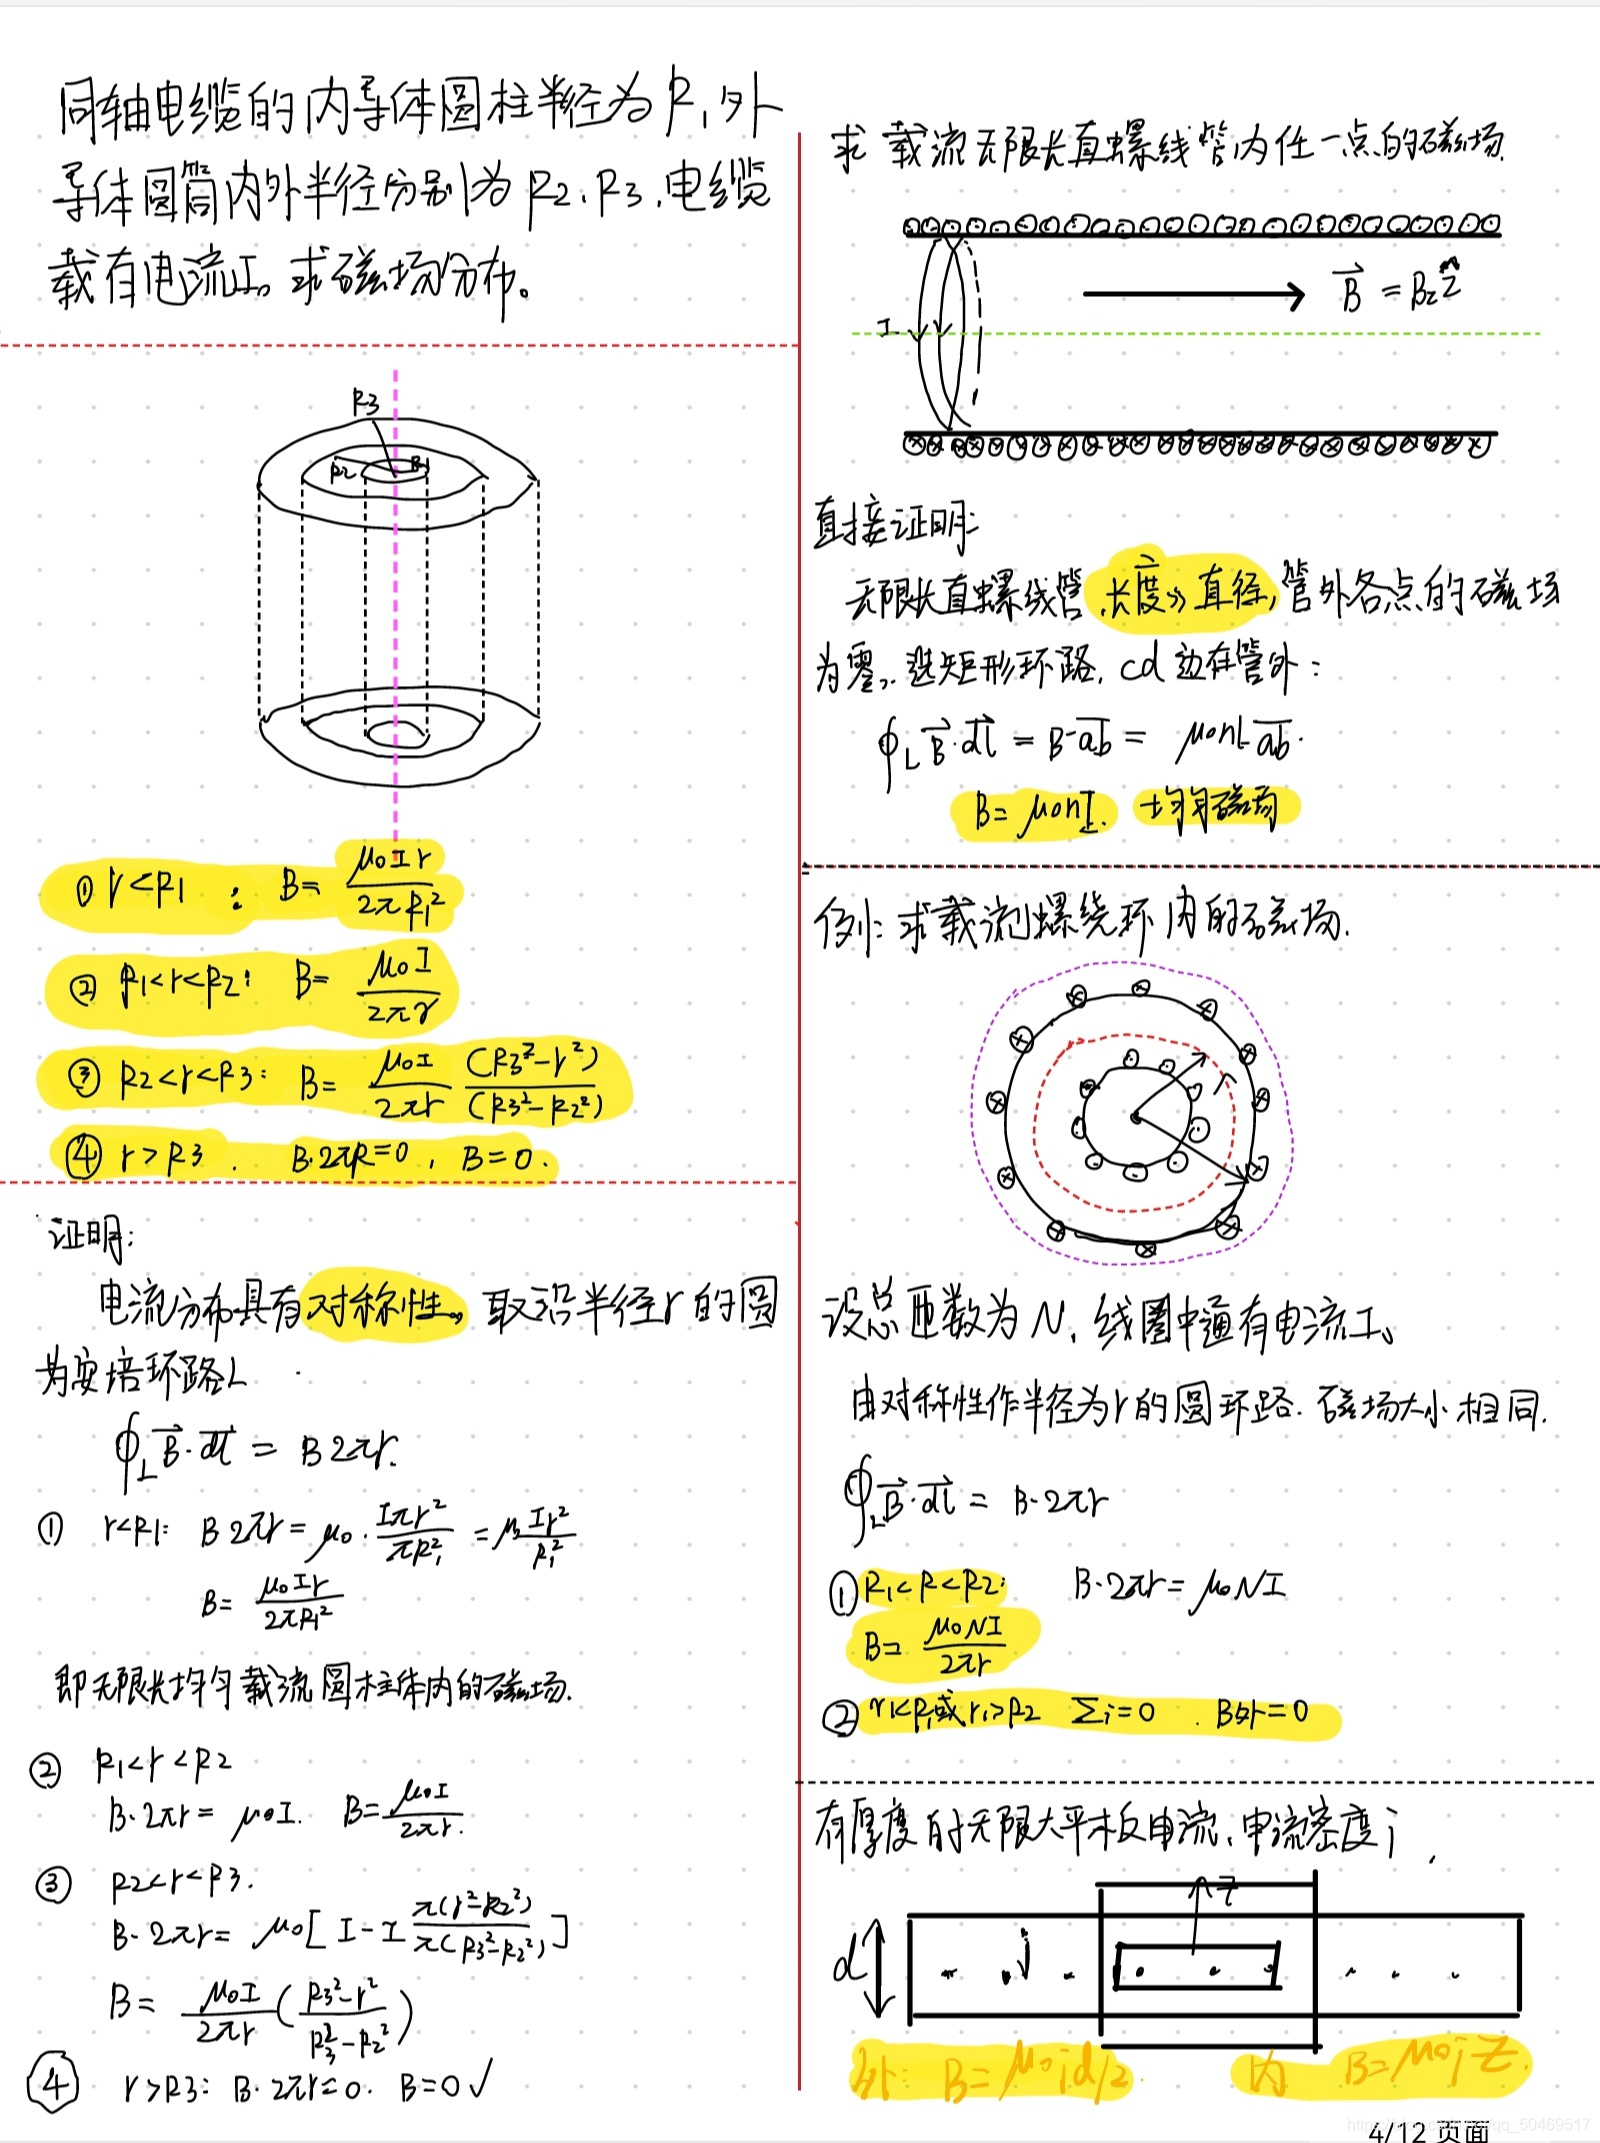 同轴电缆的内导体圆柱半径为R₁,外
导体圆筒内外半径分别为R2、R3,电缆
载有电流I。求磁场分布。
R3
R2
R1
① r<R1 : B= μ₀Ir/2πR₁²
② R1<r<R2: B= μ₀I/2πr
③ R2<r<R3: B= μ₀I/2πr (R3²-r²)/(R3²-R2²)
④ r>R3. B·2πR=0, B=0.
证明:
电流分布具有对称性。取沿半径r的圆
为安培环路L
∮L B⃗·dl⃗ = B2πr.
① r<R1: B2πr = μ₀·Iπr²/πR₁² = μ₀Ir²/R₁²
B= μ₀Ir/2πR1²
即无限长均匀载流圆柱体内的磁场.
② R1<r<R2
B·2πr= μ₀I. B= μ₀I/2πr.
③ R2<r<R3.
B·2πr= μ₀[I-I π(r²-R2²)/π(R3²-R2²)]
B= μ₀I/2πr (R3²-r²/R3²-R2²)
④ r>R3: B·2πr=0. B=0✓
求载流无限长直螺线管内任一点的磁场.
I
B⃗ =Bz ẑ
直接证明:
无限长直螺线管,长度>>直径,管外各点的磁场
为零。选矩形环路,cd边在管外:
∮L B⃗·dl⃗ = B·ab = μ₀nI ab.
B= μ₀nI. 均匀磁场
例:求载流螺绕环内的磁场.
r
设总匝数为N,线圈中通有电流I。
由对称性作半径为r的圆环路.磁场大小相同.
∮L B⃗·dl⃗ = B·2πr
① R1<R<R2: B·2πr= μ₀NI
B= μ₀NI/2πr
② r<R1或r>R2 Σi=0. B外=0
有厚度的无限大平板电流,电流密度j,
z
d
j
外: B= μ₀jd/2
内 B= μ₀jz.
4/12 页面